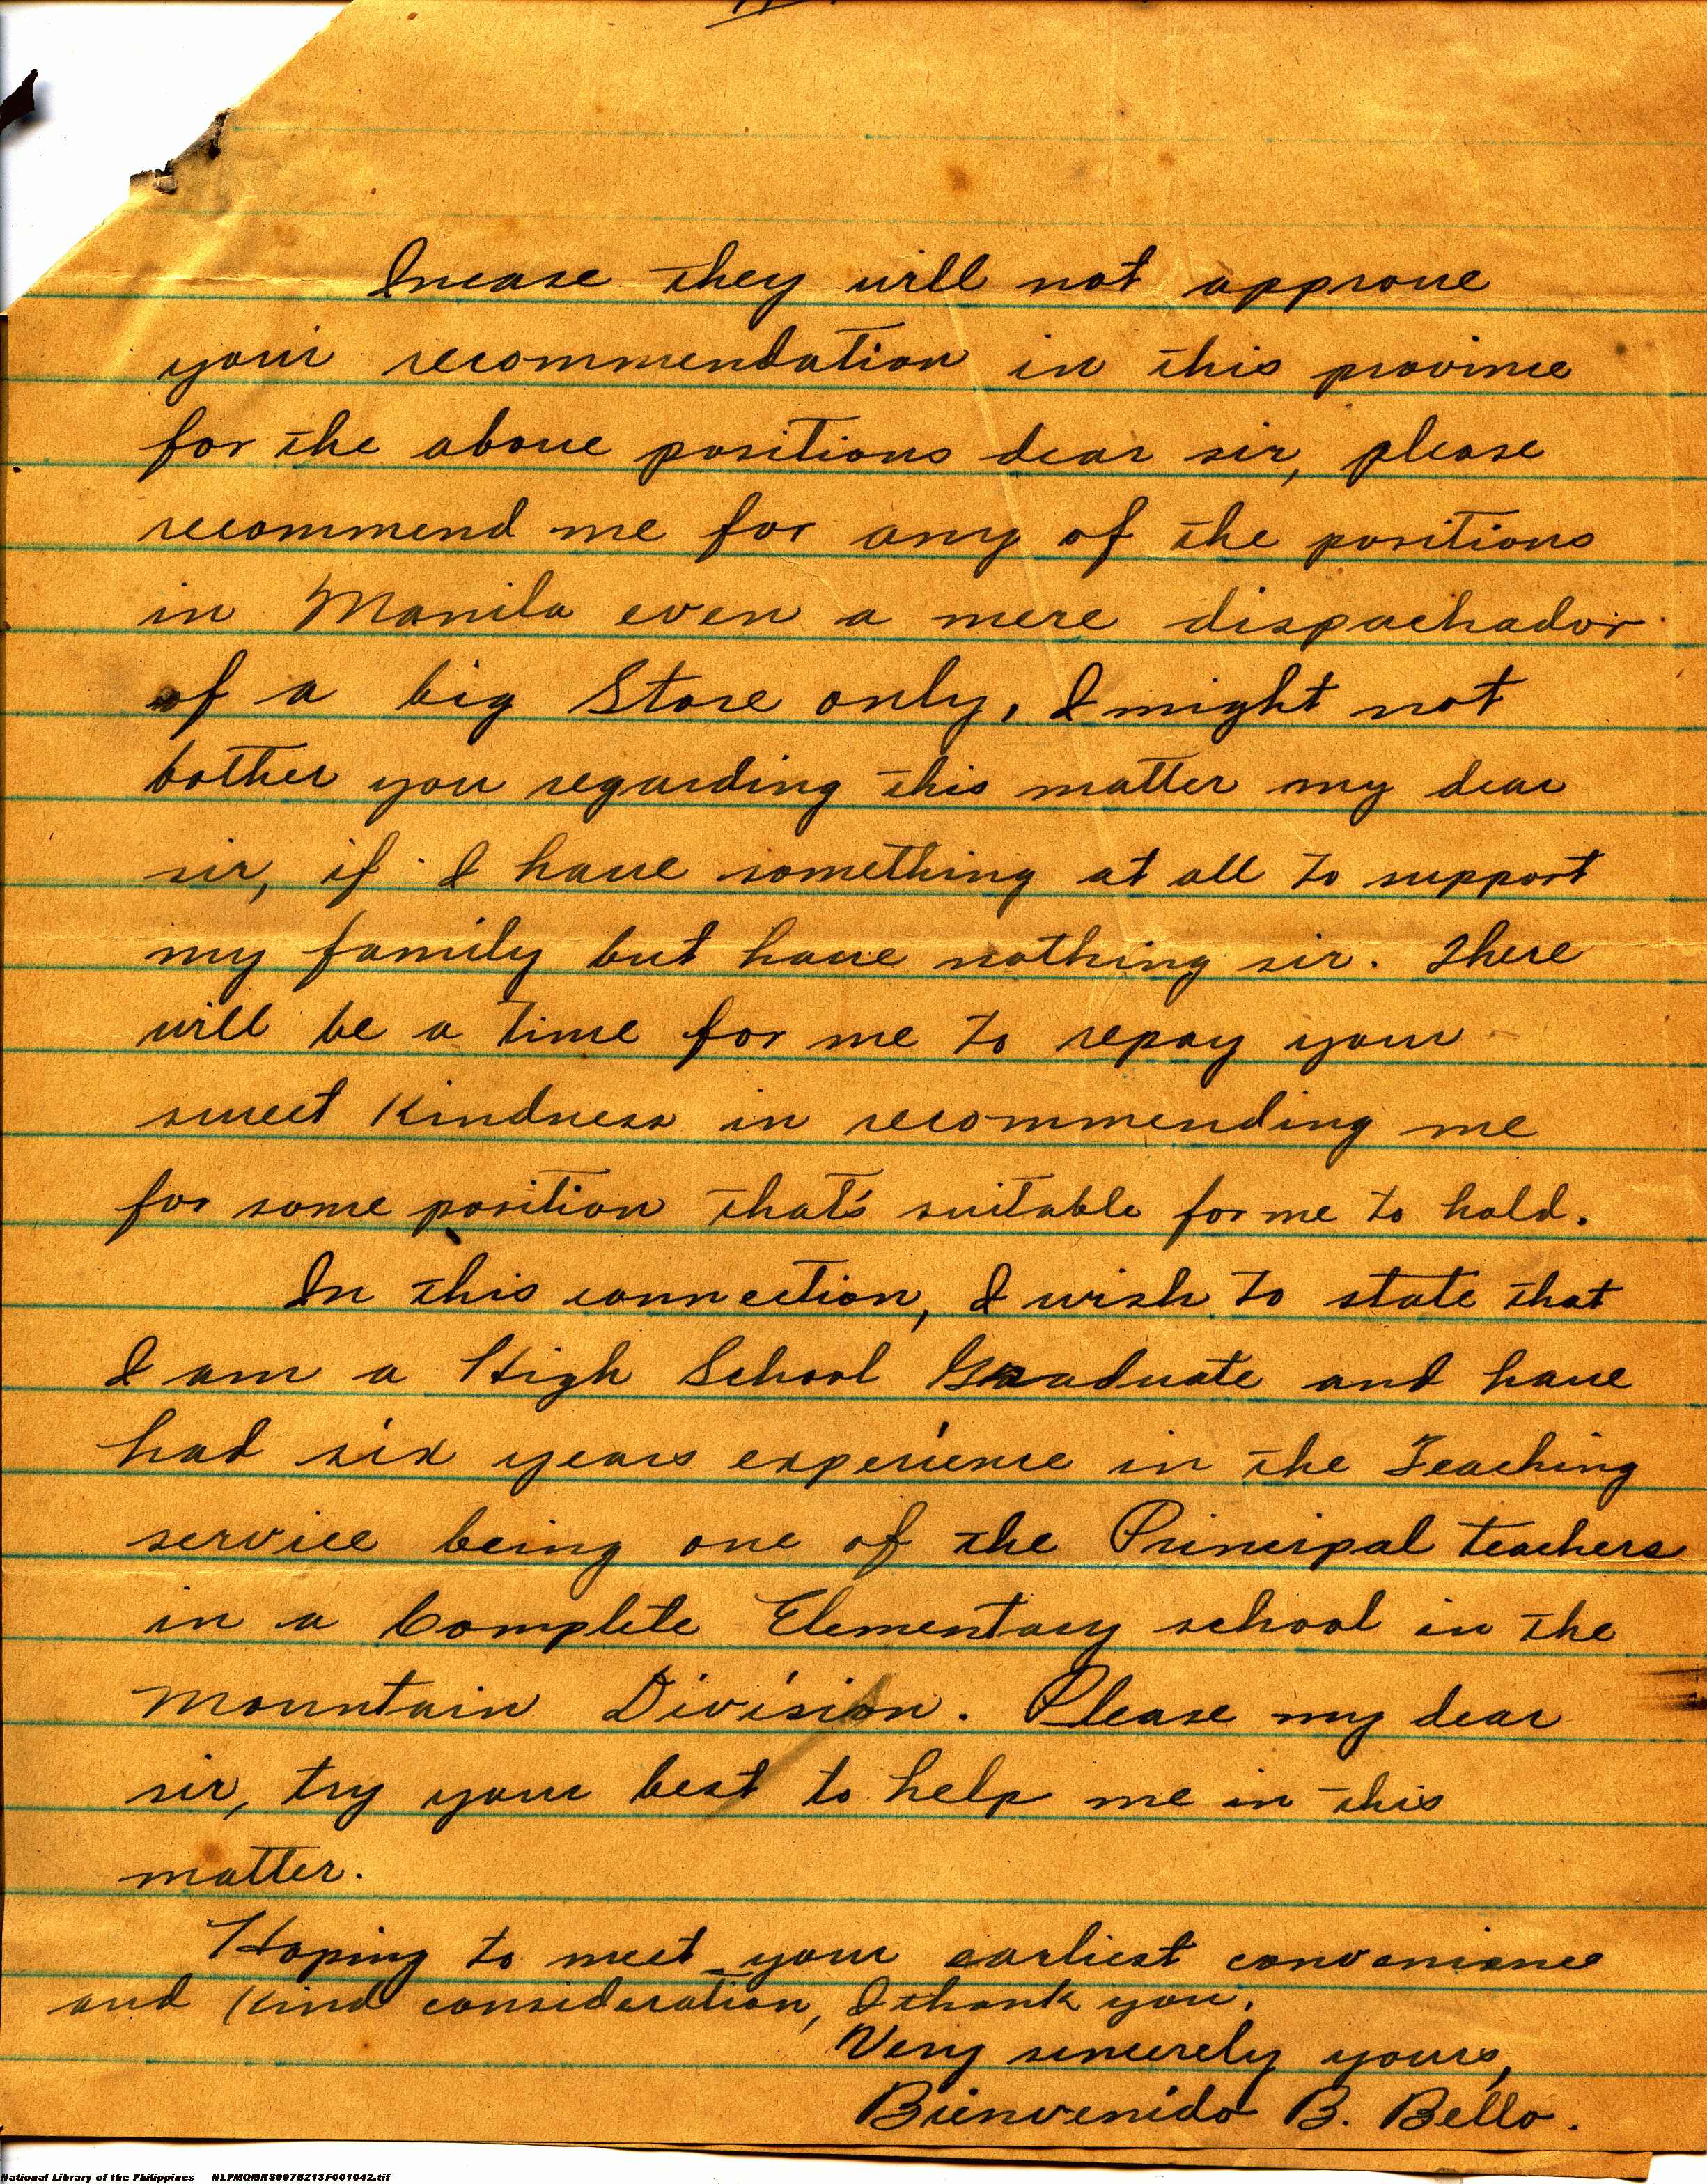 Incase they will not approve
your recommendation in this province
for the above positions dear sir, please
recommend me for any of the positions
in Manila even a mere dispachador
of a big Store only, I might not
bother you regarding this matter my dear
sir, if I have something at all to support
my family but have nothing sir. There
will be a time for me to repay your
sweet kindness in recommending me
for some position that's suitable for me to hold.
In this connection, I wish to state that
I am a High School Graduate and have
had six years experience in the Teaching
service being one of the Principal teachers
in a Complete Elementary school in the
Mountain Division. Please my dear
sir, try your best to help me in this
matter.
Hoping to meet your earliest convenience
and kind consideration, I thank you.
Very sincerely yours,
Bienvenido B. Bello.
National Library of the Philippines NLPMQMNS007B213F001042.tif